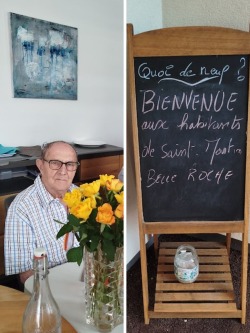 Quoi de neuf ?
BIENVENUE
aux habitants
de Saint-Martin
BELLE ROCHE